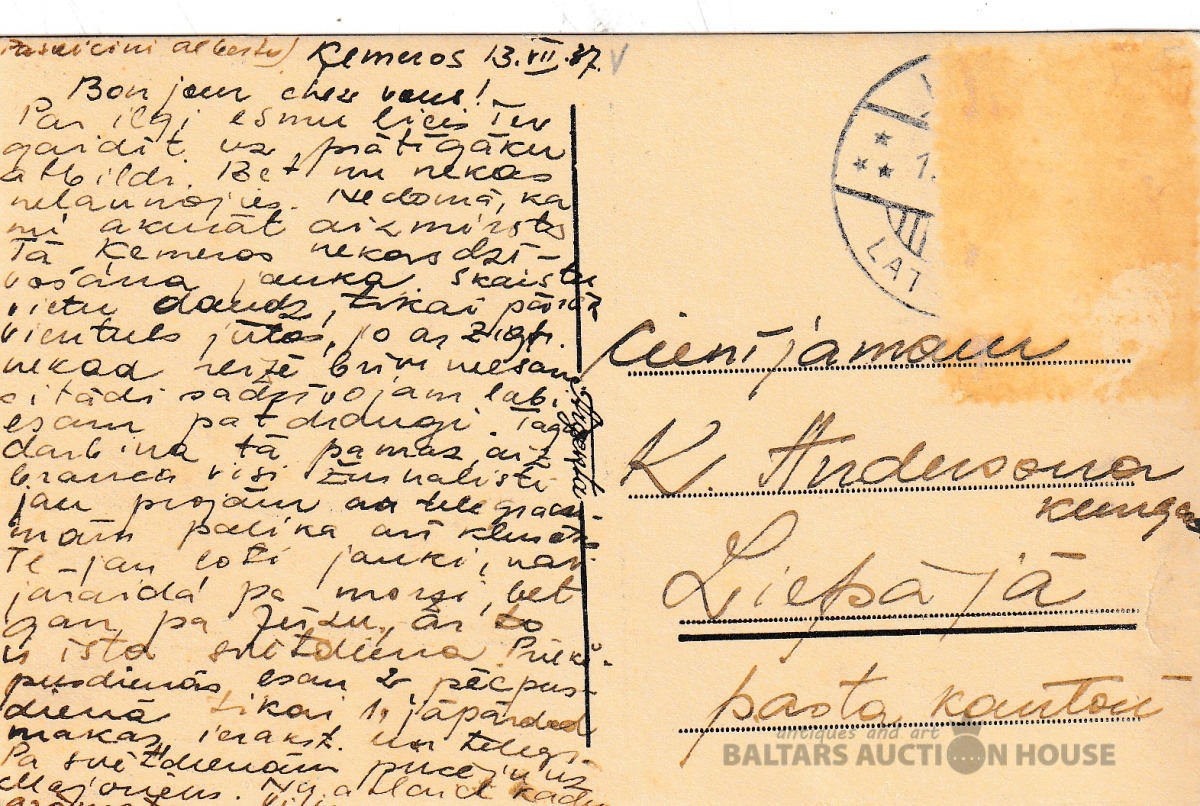 Ķemeros 13.VII.37.
Bonjour chez vous!
Par ilgi esmu licis Tev
gaidīt uz prātīgāku
atbildi. Bet nu nekas
nelaunojies. Nedomā, ka
mi akurāt aizmirsts
Tā Ķemeros nekas dzī-
vošana jauka. Skaistu
vietu daudz, tikai pārāk
vientuls jūtos, jo ar
nekad brīvi neesam
citādi sadzīvojam labi
esam pat draugi. Tagad
darbiņa tā pamaz aiz
brauca visi žurnalisti
jau projām ar telegram-
mām palika arī klusāks
Te jau ļoti jauki, nav
jāraida pa morzi, bet
gan pa Jūzu, ar to
ir īsta svētdiena. Priekš-
pusdienās esam 2 pēcpus-
dienā tikai 1, jāpārdod
markas ierakst. un telegr.
Pa svētdienām
Majoriem. Nu atlaid kādu
Cienījamam
K. Andersona
kungam
Liepājā
pasta kantorī
LAT
antiques and art
BALTARS AUCTION HOUSE